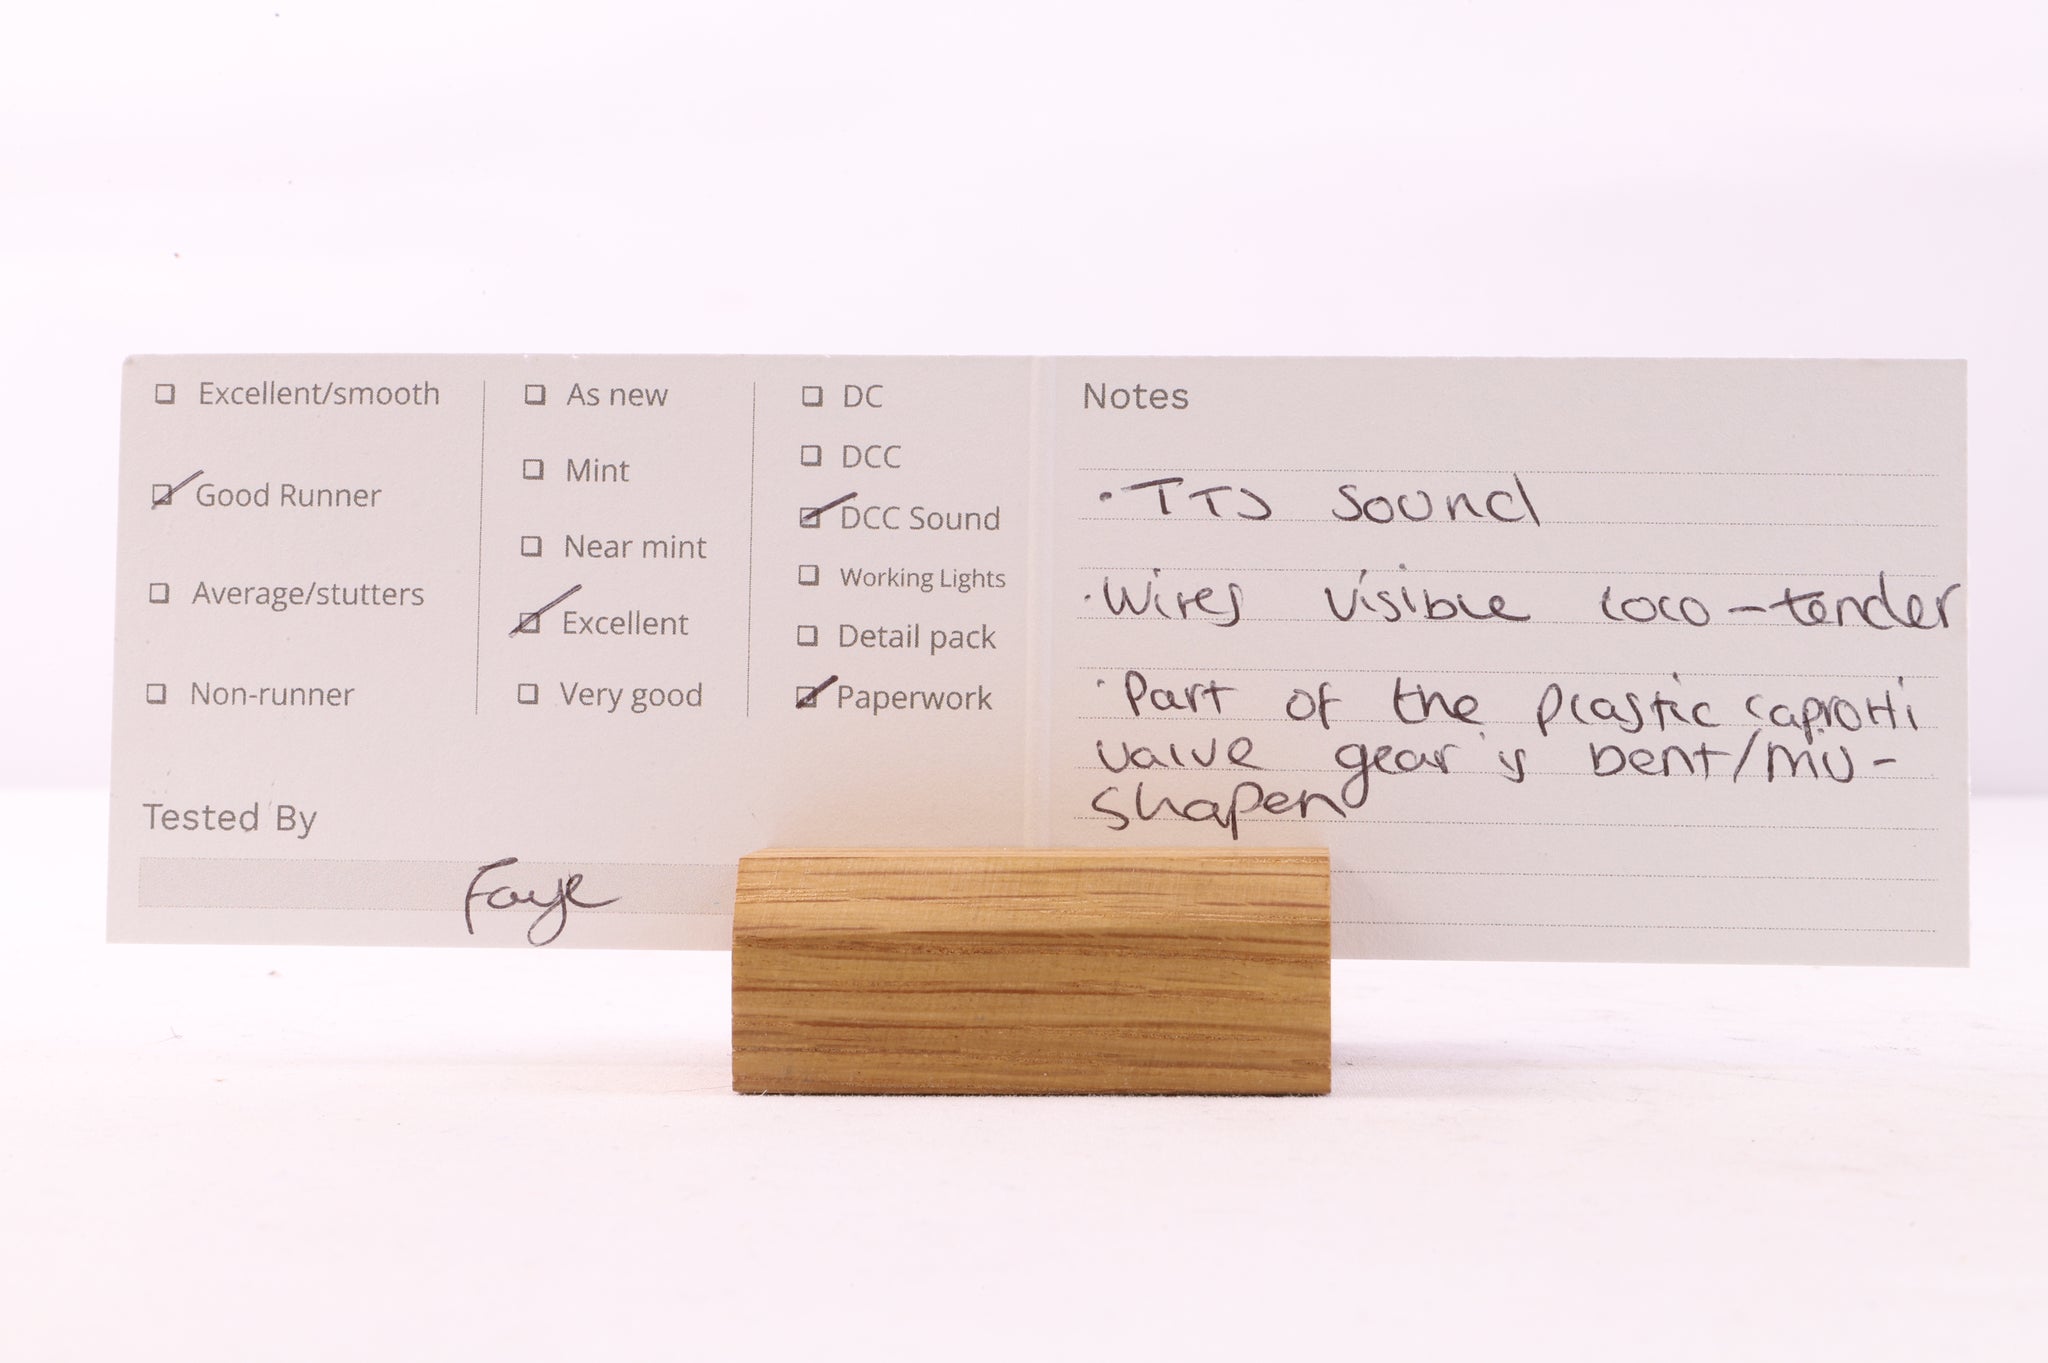 Excellent/smooth
Good Runner
Average/stutters
Non-runner
As new
Mint
Near mint
Excellent
Very good
DC
DCC
DCC Sound
Working Lights
Detail pack
Paperwork
Tested By
Faye
Notes
· TTS Sound
· Wires visible loco - tender
· Part of the plastic caprotti
valve gear is bent/mis-
shapen